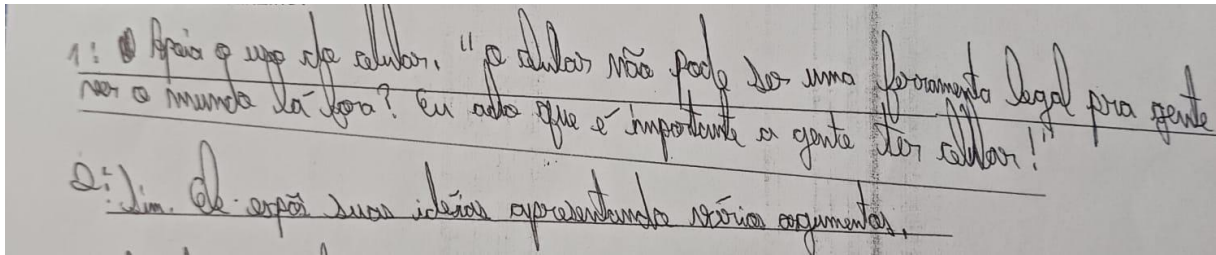 1: Apoia o uso do celular. "o celular não pode ser uma ferramenta legal pra gente
ver o mundo lá fora? Eu acho que é importante a gente ter celular!"
2: Sim. Ele expõi suas idéias apresentando vários argumentos.